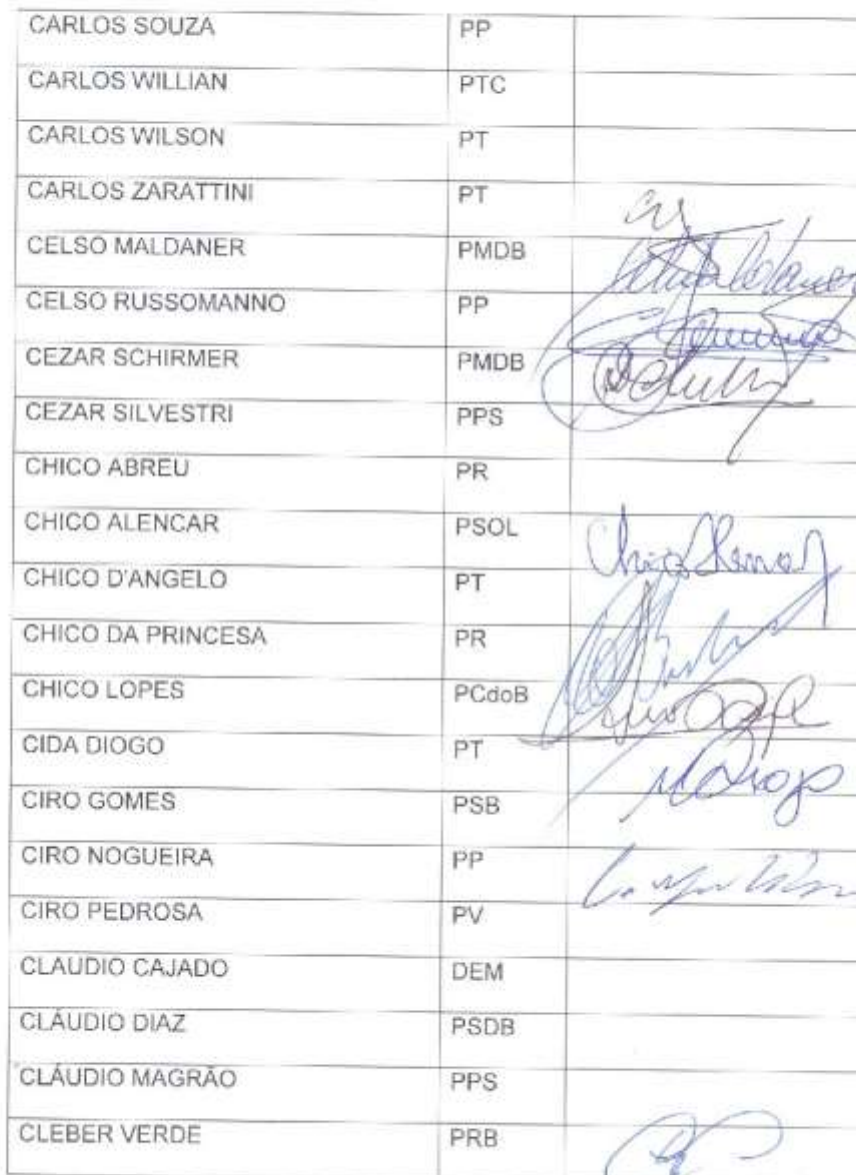 CARLOS SOUZA PP
CARLOS WILLIAN PTC
CARLOS WILSON PT
CARLOS ZARATTINI PT
CELSO MALDANER PMDB
CELSO RUSSOMANNO PP
CEZAR SCHIRMER PMDB
CEZAR SILVESTRI PPS
CHICO ABREU PR
CHICO ALENCAR PSOL
CHICO D'ANGELO PT
CHICO DA PRINCESA PR
CHICO LOPES PCdoB
CIDA DIOGO PT
CIRO GOMES PSB
CIRO NOGUEIRA PP
CIRO PEDROSA PV
CLAUDIO CAJADO DEM
CLÁUDIO DIAZ PSDB
CLÁUDIO MAGRÃO PPS
CLEBER VERDE PRB